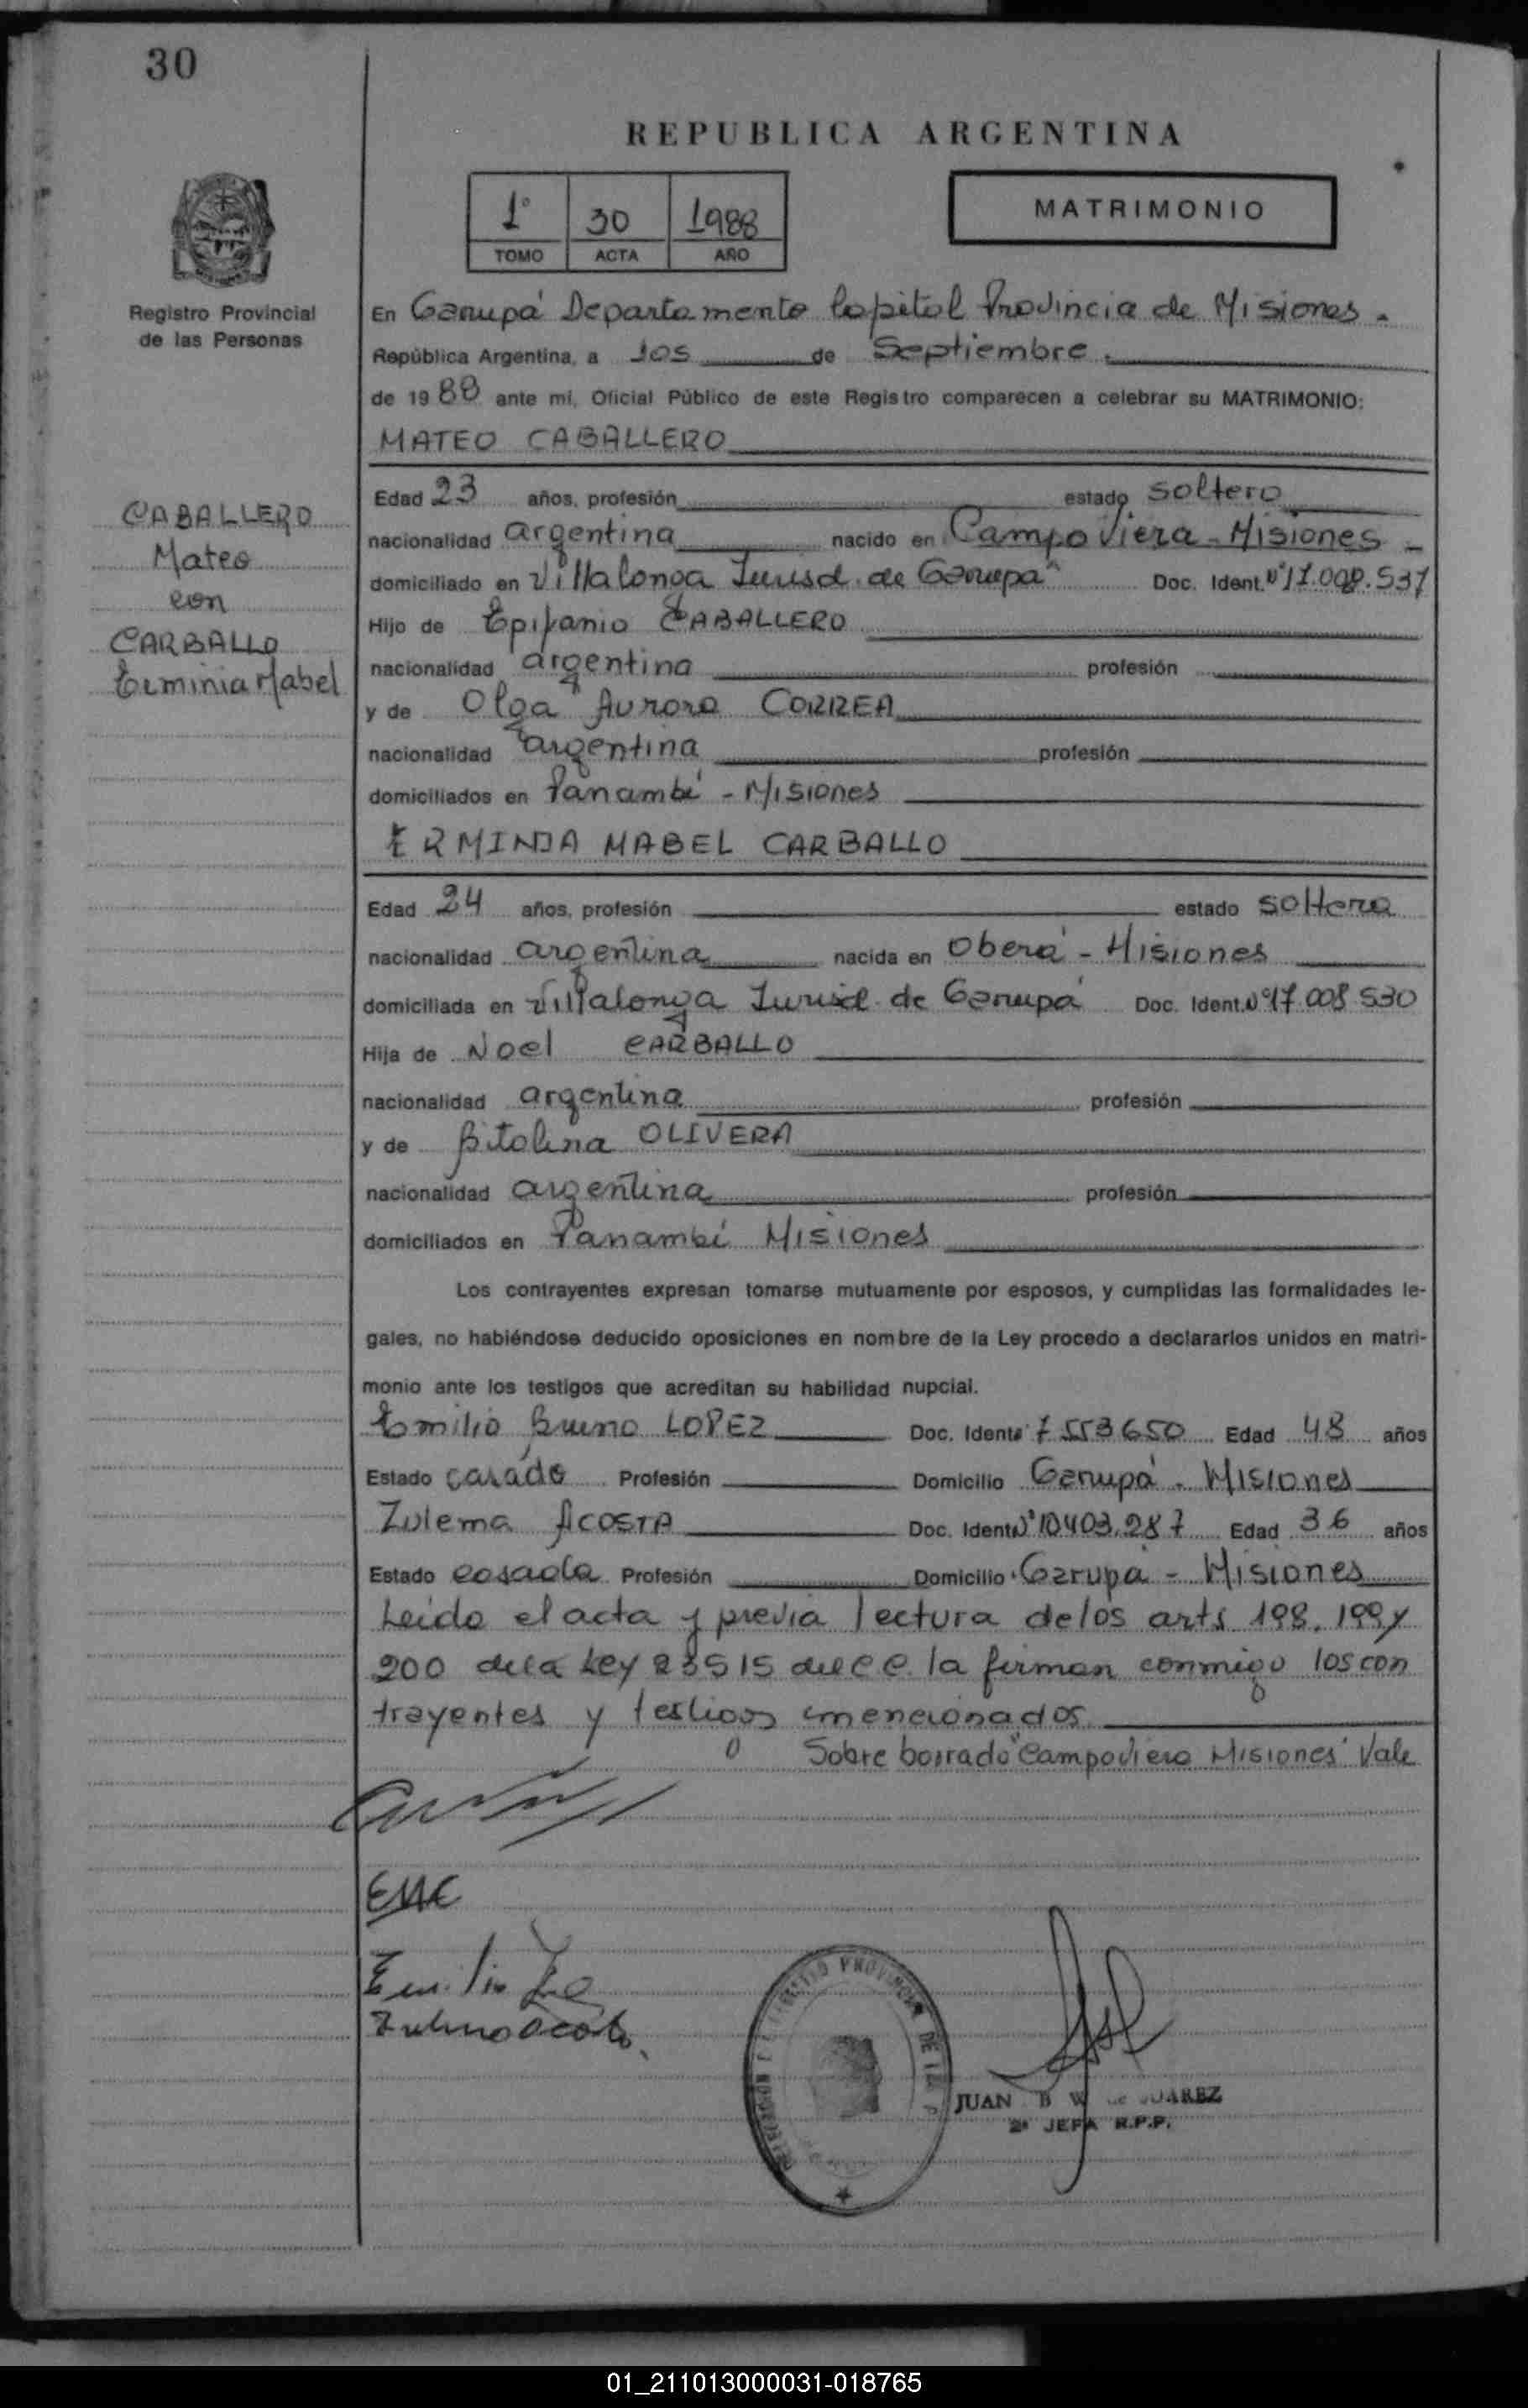 30
REPUBLICA ARGENTINA
1° 30 1988
TOMO ACTA AÑO
MATRIMONIO
Registro Provincial
de las Personas
En Garupá Departamento Capital Provincia de Misiones.
República Argentina, a dos de Septiembre.
de 1988 ante mí, Oficial Público de este Registro comparecen a celebrar su MATRIMONIO:
MATEO CABALLERO
CABALLERO
Mateo
con
CARBALLO
Erminia Mabel
Edad 23 años, profesión estado soltero
nacionalidad argentina nacido en Campo Viera - Misiones -
domiciliado en Villalonga Jurisd. de Garupá Doc. Ident. N°
Hijo de Epifanio CABALLERO
nacionalidad argentina profesión
y de Olga Aurora CORREA
nacionalidad argentina profesión
domiciliados en Panambí - Misiones
ERMINIA MABEL CARBALLO
Edad 24 años, profesión estado soltera
nacionalidad argentina nacida en Oberá - Misiones
domiciliada en Villalonga Jurisd. de Garupá Doc. Ident. N° 17.008.530
Hija de Noel CARBALLO
nacionalidad argentina profesión
y de Bitolina OLIVERA
nacionalidad argentina profesión
domiciliados en Panambí Misiones
Los contrayentes expresan tomarse mutuamente por esposos, y cumplidas las formalidades le-
gales, no habiéndose deducido oposiciones en nombre de la Ley procedo a declararlos unidos en matri-
monio ante los testigos que acreditan su habilidad nupcial.
Emilio Bruno LOPEZ Doc. Ident. 7553650 Edad 48 años
Estado casado Profesión Domicilio Garupá - Misiones
Zulema ACOSTA Doc. Ident. N° 10403.287 Edad 36 años
Estado casada Profesión Domicilio Garupá - Misiones
Leído el acta y previa lectura de los arts 198, 199 y
200 de la Ley 23515 del C.C. la firman conmigo los con
trayentes y testigos mencionados
Sobre borrado "Campo Viera Misiones" Vale
EMC
Emilio
Zulema Acosta
REGISTRO PROVINCIAL DE
JUAN B W de SUAREZ
2ª JEFA R.P.P.
01_211013000031-018765